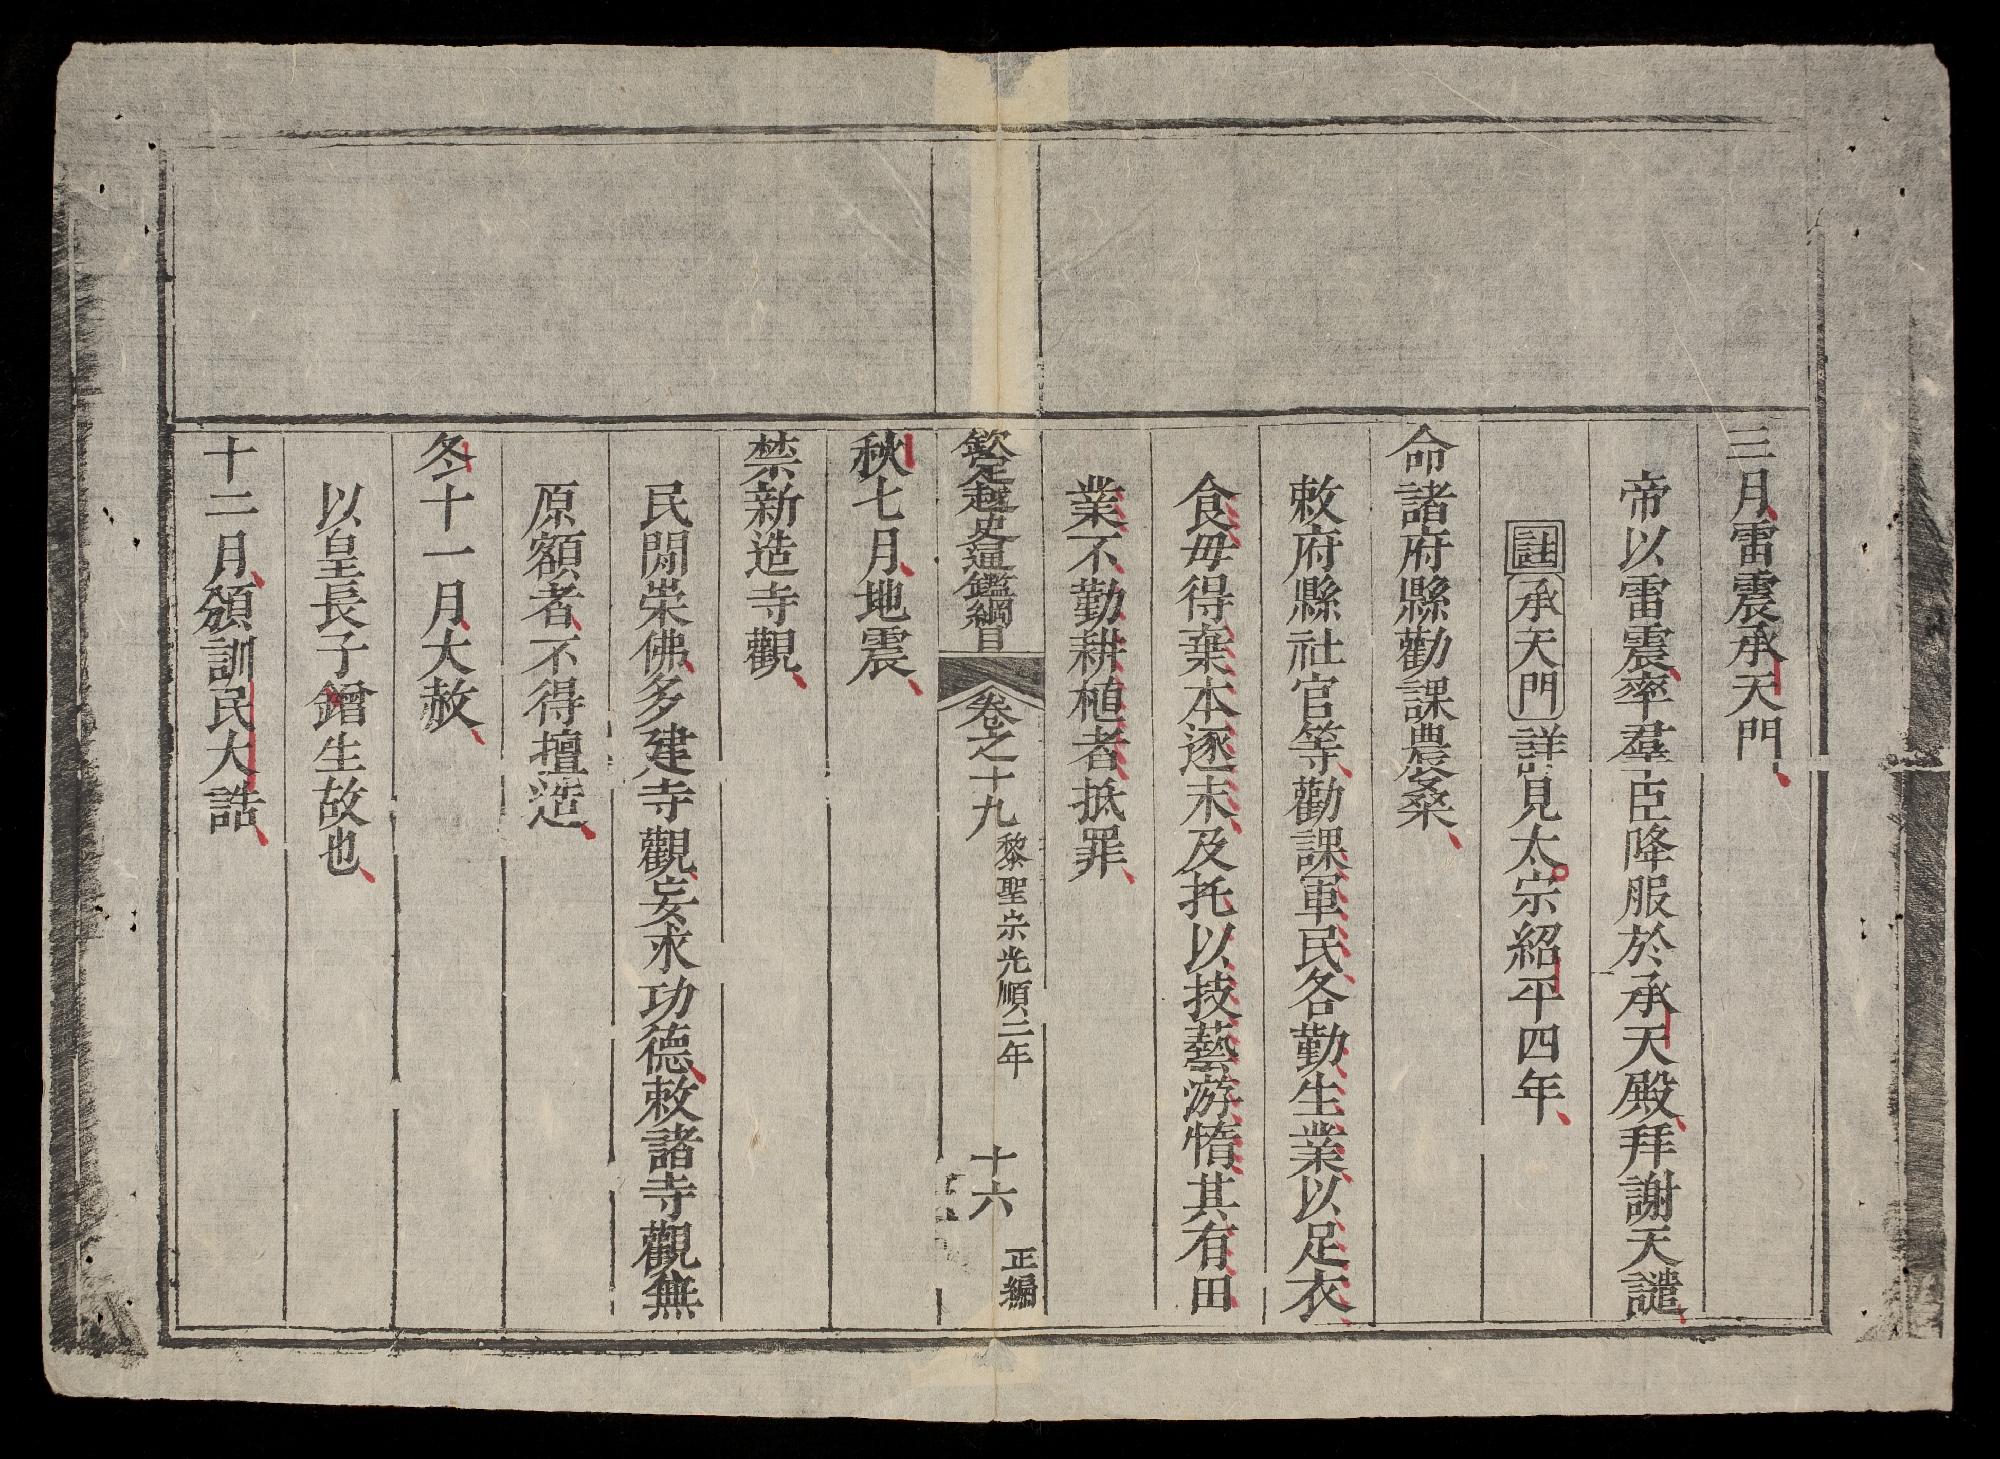 三月雷震承天門
帝以雷震率羣臣降服於承天殿拜謝天譴
註承天門詳見太宗紹平四年
命諸府縣勸課農桑
敕府縣社官等勸課軍民各勤生業以足衣
食毋得棄本逐末及托以技藝游惰其有田
業不勤耕植者抵罪
欽定越史通鑑綱目 卷之十九 黎聖宗光順二年 十六 正編
秋七月地震
禁新造寺觀
民閒崇佛多建寺觀妄求功德敕諸寺觀無
原額者不得擅造
冬十一月大赦
以皇長子鏳生故也
十二月頒訓民大誥